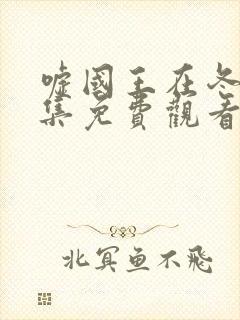 嘘國王在冬
集免費觀看
北冥鱼不飛